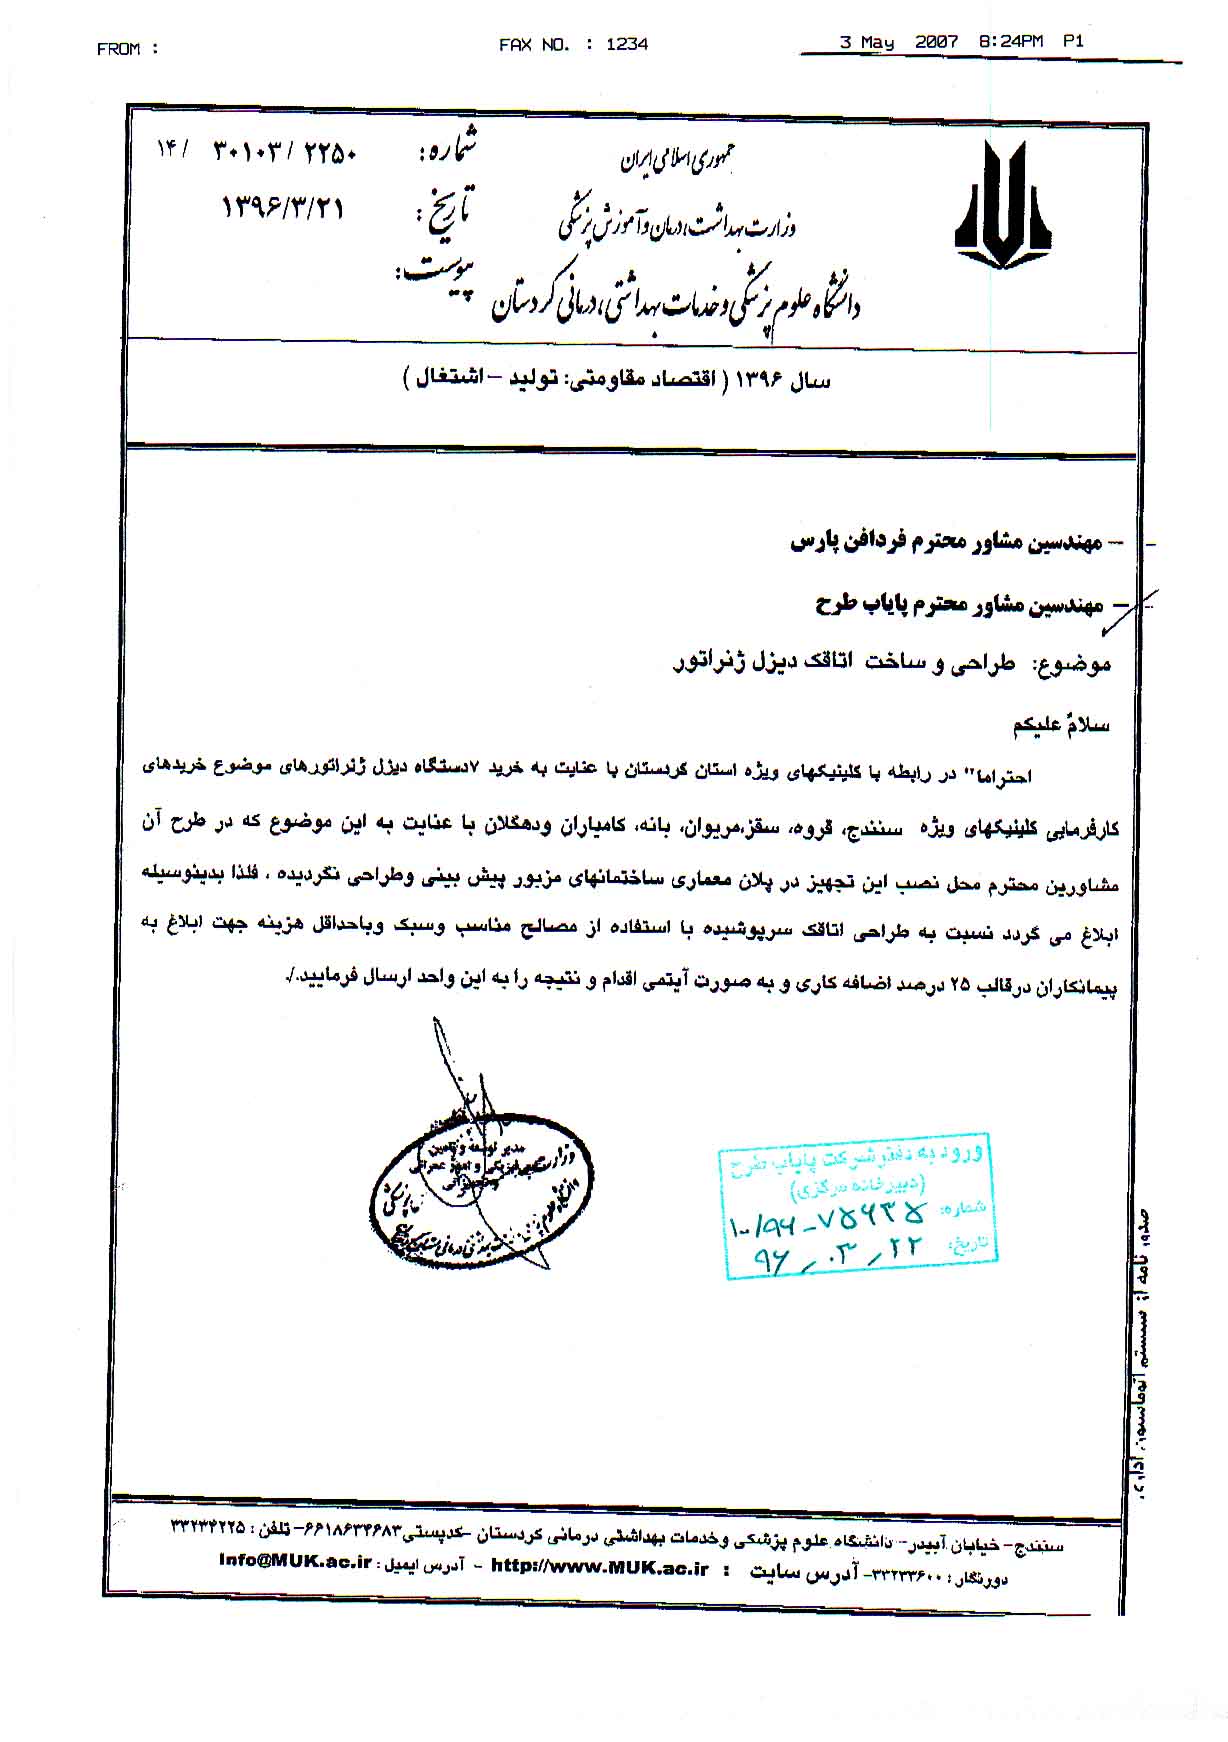 FROM :
FAX NO. : 1234
3 May 2007 8:24PM P1
جمهوری اسلامی ایران
وزارت بهداشت، درمان و آموزش پزشکی
دانشگاه علوم پزشکی و خدمات بهداشتی، درمانی کردستان
شماره: ۱۴/ ۳۰۱۰۳/ ۲۲۵۰
تاریخ: ۱۳۹۶/۳/۲۱
پیوست:
سال ۱۳۹۶ ( اقتصاد مقاومتی: تولید – اشتغال )
– مهندسین مشاور محترم فردافن پارس
– مهندسین مشاور محترم پایاب طرح
موضوع: طراحی و ساخت اتاقک دیزل ژنراتور
سلامٌ علیکم
احتراما" در رابطه با کلینیکهای ویژه استان کردستان با عنایت به خرید ۷دستگاه دیزل ژنراتورهای موضوع خریدهای
کارفرمایی کلینیکهای ویژه سنندج، قروه، سقز،مریوان، بانه، کامیاران ودهگلان با عنایت به این موضوع که در طرح آن
مشاورین محترم محل نصب این تجهیز در پلان معماری ساختمانهای مزبور پیش بینی وطراحی نگردیده ، فلذا بدینوسیله
ابلاغ می گردد نسبت به طراحی اتاقک سرپوشیده با استفاده از مصالح مناسب وسبک وباحداقل هزینه جهت ابلاغ به
پیمانکاران درقالب ۲۵ درصد اضافه کاری و به صورت آیتمی اقدام و نتیجه را به این واحد ارسال فرمایید./.
ورود به دفتر شرکت پایاب طرح
(دبیرخانه مرکزی)
شماره: ۱۰/۹۶-۷۵۶۳۵
تاریخ: ۹۶/۰۳/۲۲
صدور نامه از سیستم اتوماسیون اداری
سنندج- خیابان آبیدر- دانشگاه علوم پزشکی وخدمات بهداشتی درمانی کردستان -کدپستی۶۶۱۸۶۳۴۶۸۳- تلفن : ۳۳۲۳۴۲۲۵
دورنگار : ۳۳۲۳۳۶۰۰- آدرس سایت : http://www.MUK.ac.ir - آدرس ایمیل : Info@MUK.ac.ir